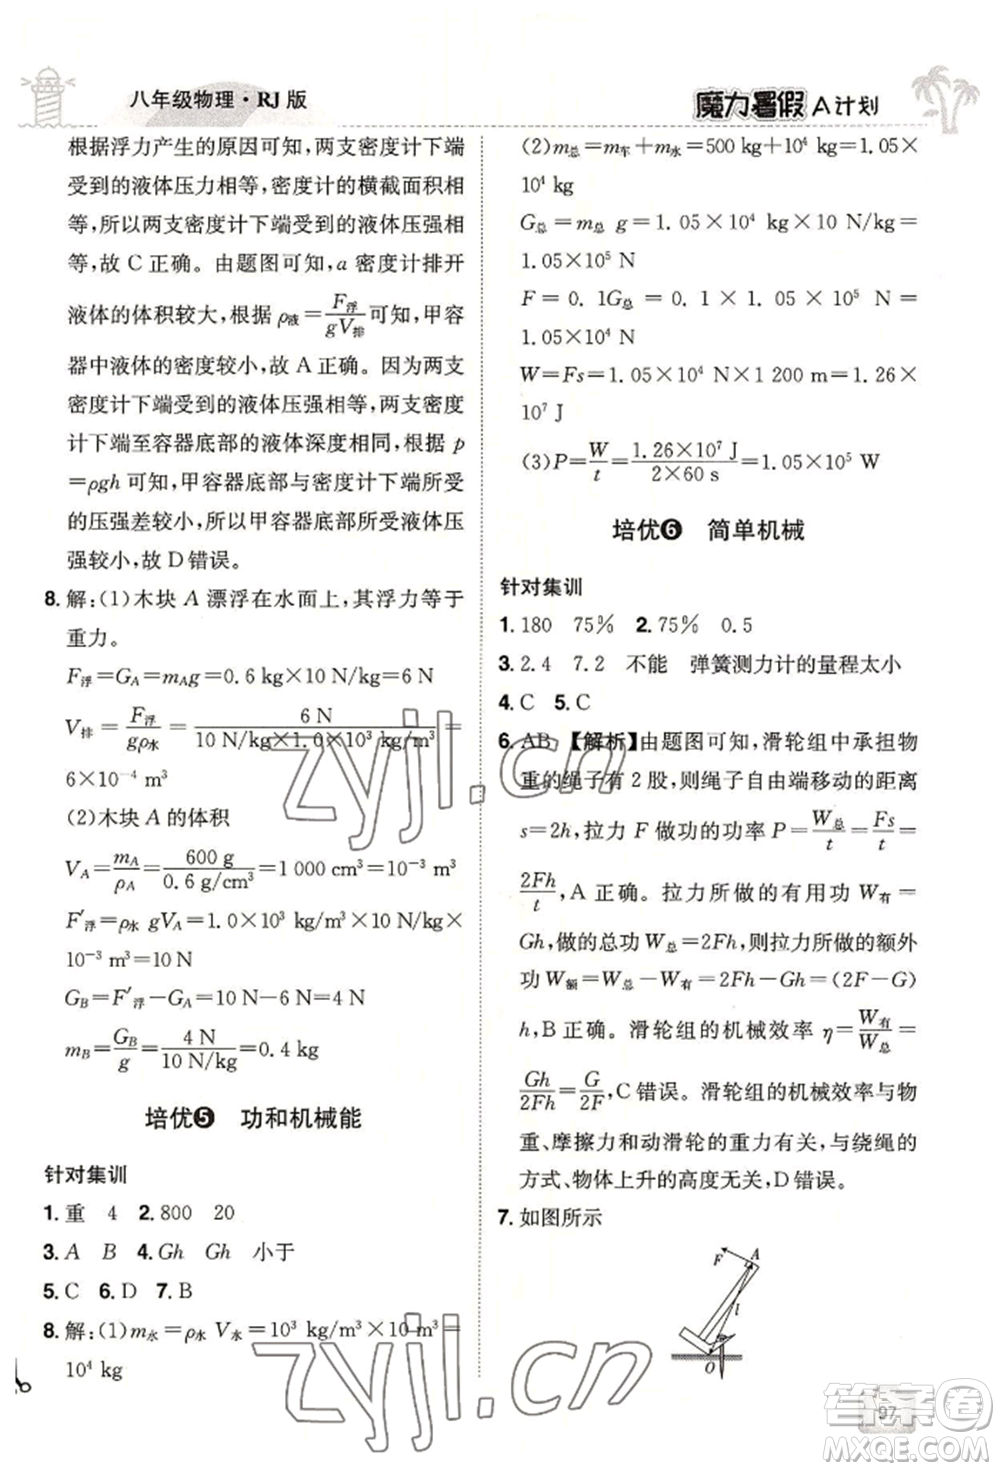 八年级物理·RJ版
魔力暑假 A计划
根据浮力产生的原因可知，两支密度计下端
受到的液体压力相等，密度计的横截面积相
等，所以两支密度计下端受到的液体压强相
等，故 C 正确。由题图可知，a 密度计排开
液体的体积较大，根据 ρ液=F浮/(gV排) 可知，甲容
器中液体的密度较小，故 A 正确。因为两支
密度计下端受到的液体压强相等，甲中密度
计下端至容器底部的液体深度相同，根据 p
=ρgh 可知，甲容器底部与密度计下端所受
的压强差较小，所以甲容器底部所受液体压
强较小，故 D 错误。
8.解：(1)木块 A 漂浮在水面上，其浮力等于
重力。
F浮=GA=mAg=0.6 kg×10 N/kg=6 N
V排=F浮/(gρ水)=6 N/(10 N/kg×1.0×10³ kg/m³)=
6×10⁻⁴ m³
(2)木块 A 的体积
VA=mA/ρA=600 g/(0.6 g/cm³)=1 000 cm³=10⁻³ m³
F′浮=ρ水 gVA=1.0×10³ kg/m³×10 N/kg×
10⁻³ m³=10 N
GB=F′浮-GA=10 N-6 N=4 N
mB=GB/g=4 N/(10 N/kg)=0.4 kg
培优❺ 功和机械能
针对集训
1.重 4 2.800 20
3.A B 4.Gh Gh 小于
5.C 6.D 7.B
8.解：(1)m水=ρ水 V水=10³ kg/m³×10 m³=
10⁴ kg
(2)m总=m车+m水=500 kg+10⁴ kg=1.05×
10⁴ kg
G总=m总 g=1.05×10⁴ kg×10 N/kg=
1.05×10⁵ N
F=0.1G总=0.1×1.05×10⁵ N=
1.05×10⁴ N
W=Fs=1.05×10⁴ N×1 200 m=1.26×
10⁷ J
(3)P=W/t=1.26×10⁷ J/(2×60 s)=1.05×10⁵ W
培优❻ 简单机械
针对集训
1.180 75% 2.75% 0.5
3.2.4 7.2 不能 弹簧测力计的量程太小
4.C 5.C
6.AB 【解析】由题图可知，滑轮组中承担物
重的绳子有 2 股，则绳子自由端移动的距离
s=2h，拉力 F 做功的功率 P=W总/t=Fs/t=
2Fh/t，A 正确。拉力所做的有用功 W有=
Gh，做的总功 W总=2Fh，则拉力所做的额外
功 W额=W总-W有=2Fh-Gh=(2F-G)
h，B 正确。滑轮组的机械效率 η=W有/W总=
Gh/2Fh=G/2F，C 错误。滑轮组的机械效率与物
重、摩擦力和动滑轮的重力有关，与绕绳的
方式、物体上升的高度无关，D 错误。
7.如图所示
F
A
l
O
97
zyjl.cn
zyjl.cn
答案圈
MXQE.COM